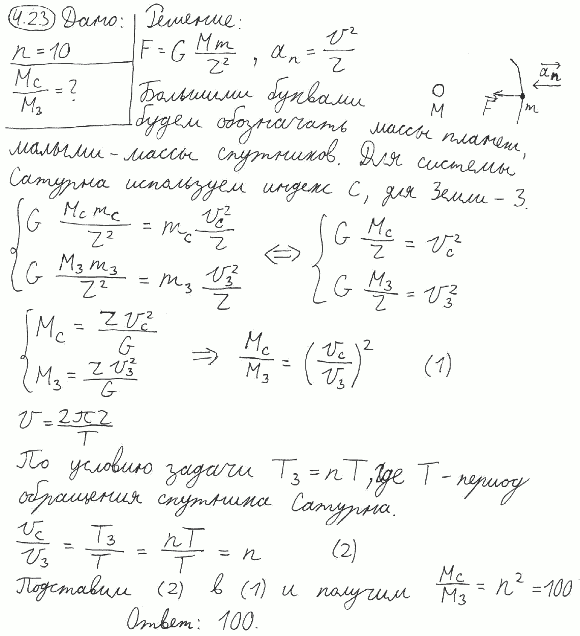 4.23 Дано: Решение:
n = 10
Mc/Mз = ?
F = G Mm/r², aₙ = v²/r
Большими буквами
будем обозначать массы планет,
малыми – массы спутников. Для системы
Сатурна используем индекс С, для Земли – З.
M F m aₙ
G Mc mc/r² = mc vc²/r ⇔ G Mc/r = vc²
G Mз mз/r² = mз vз²/r G Mз/r = vз²
Mc = r vc²/G
Mз = r vз²/G ⇒ Mc/Mз = (vc/vз)² (1)
v = 2πr/T
По условию задачи Tз = nT, где T – период
обращения спутника Сатурна.
vc/vз = Tз/T = nT/T = n (2)
Подставим (2) в (1) и получим Mc/Mз = n² = 100
Ответ: 100.